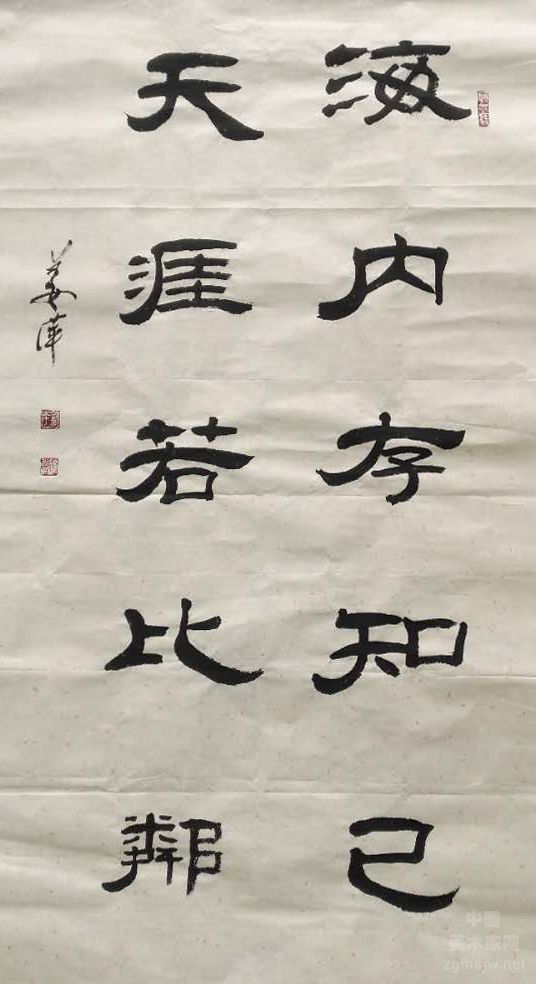 海内存知己
天涯若比鄰
姜萍
中国
美术家网
zgmsjw.net